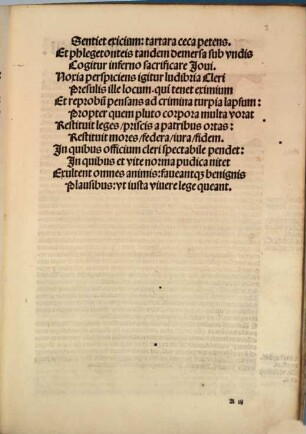 Sentiet exicium: tartara ceca petens.
Et phlegetonteis tandem demersa sub vndis
Cogitur inferno sacrificare Joui.
Noxia perspiciens igitur ludibria Cleri
Presulis ille locum qui tenet eximium
Et reprobũ pensans ad crimina turpia lapsum:
Propter quem pluto corpora multa vorat
Restituit leges/priscis a patribus ortas:
Restituit mores/federa/iura/fidem.
In quibus officium cleri spectabile pendet:
In quibus et vite norma pudica nitet
Exultent omnes animis: faueantqꝫ benignis
Plausibus: vt iusta viuere lege queant.
A iij